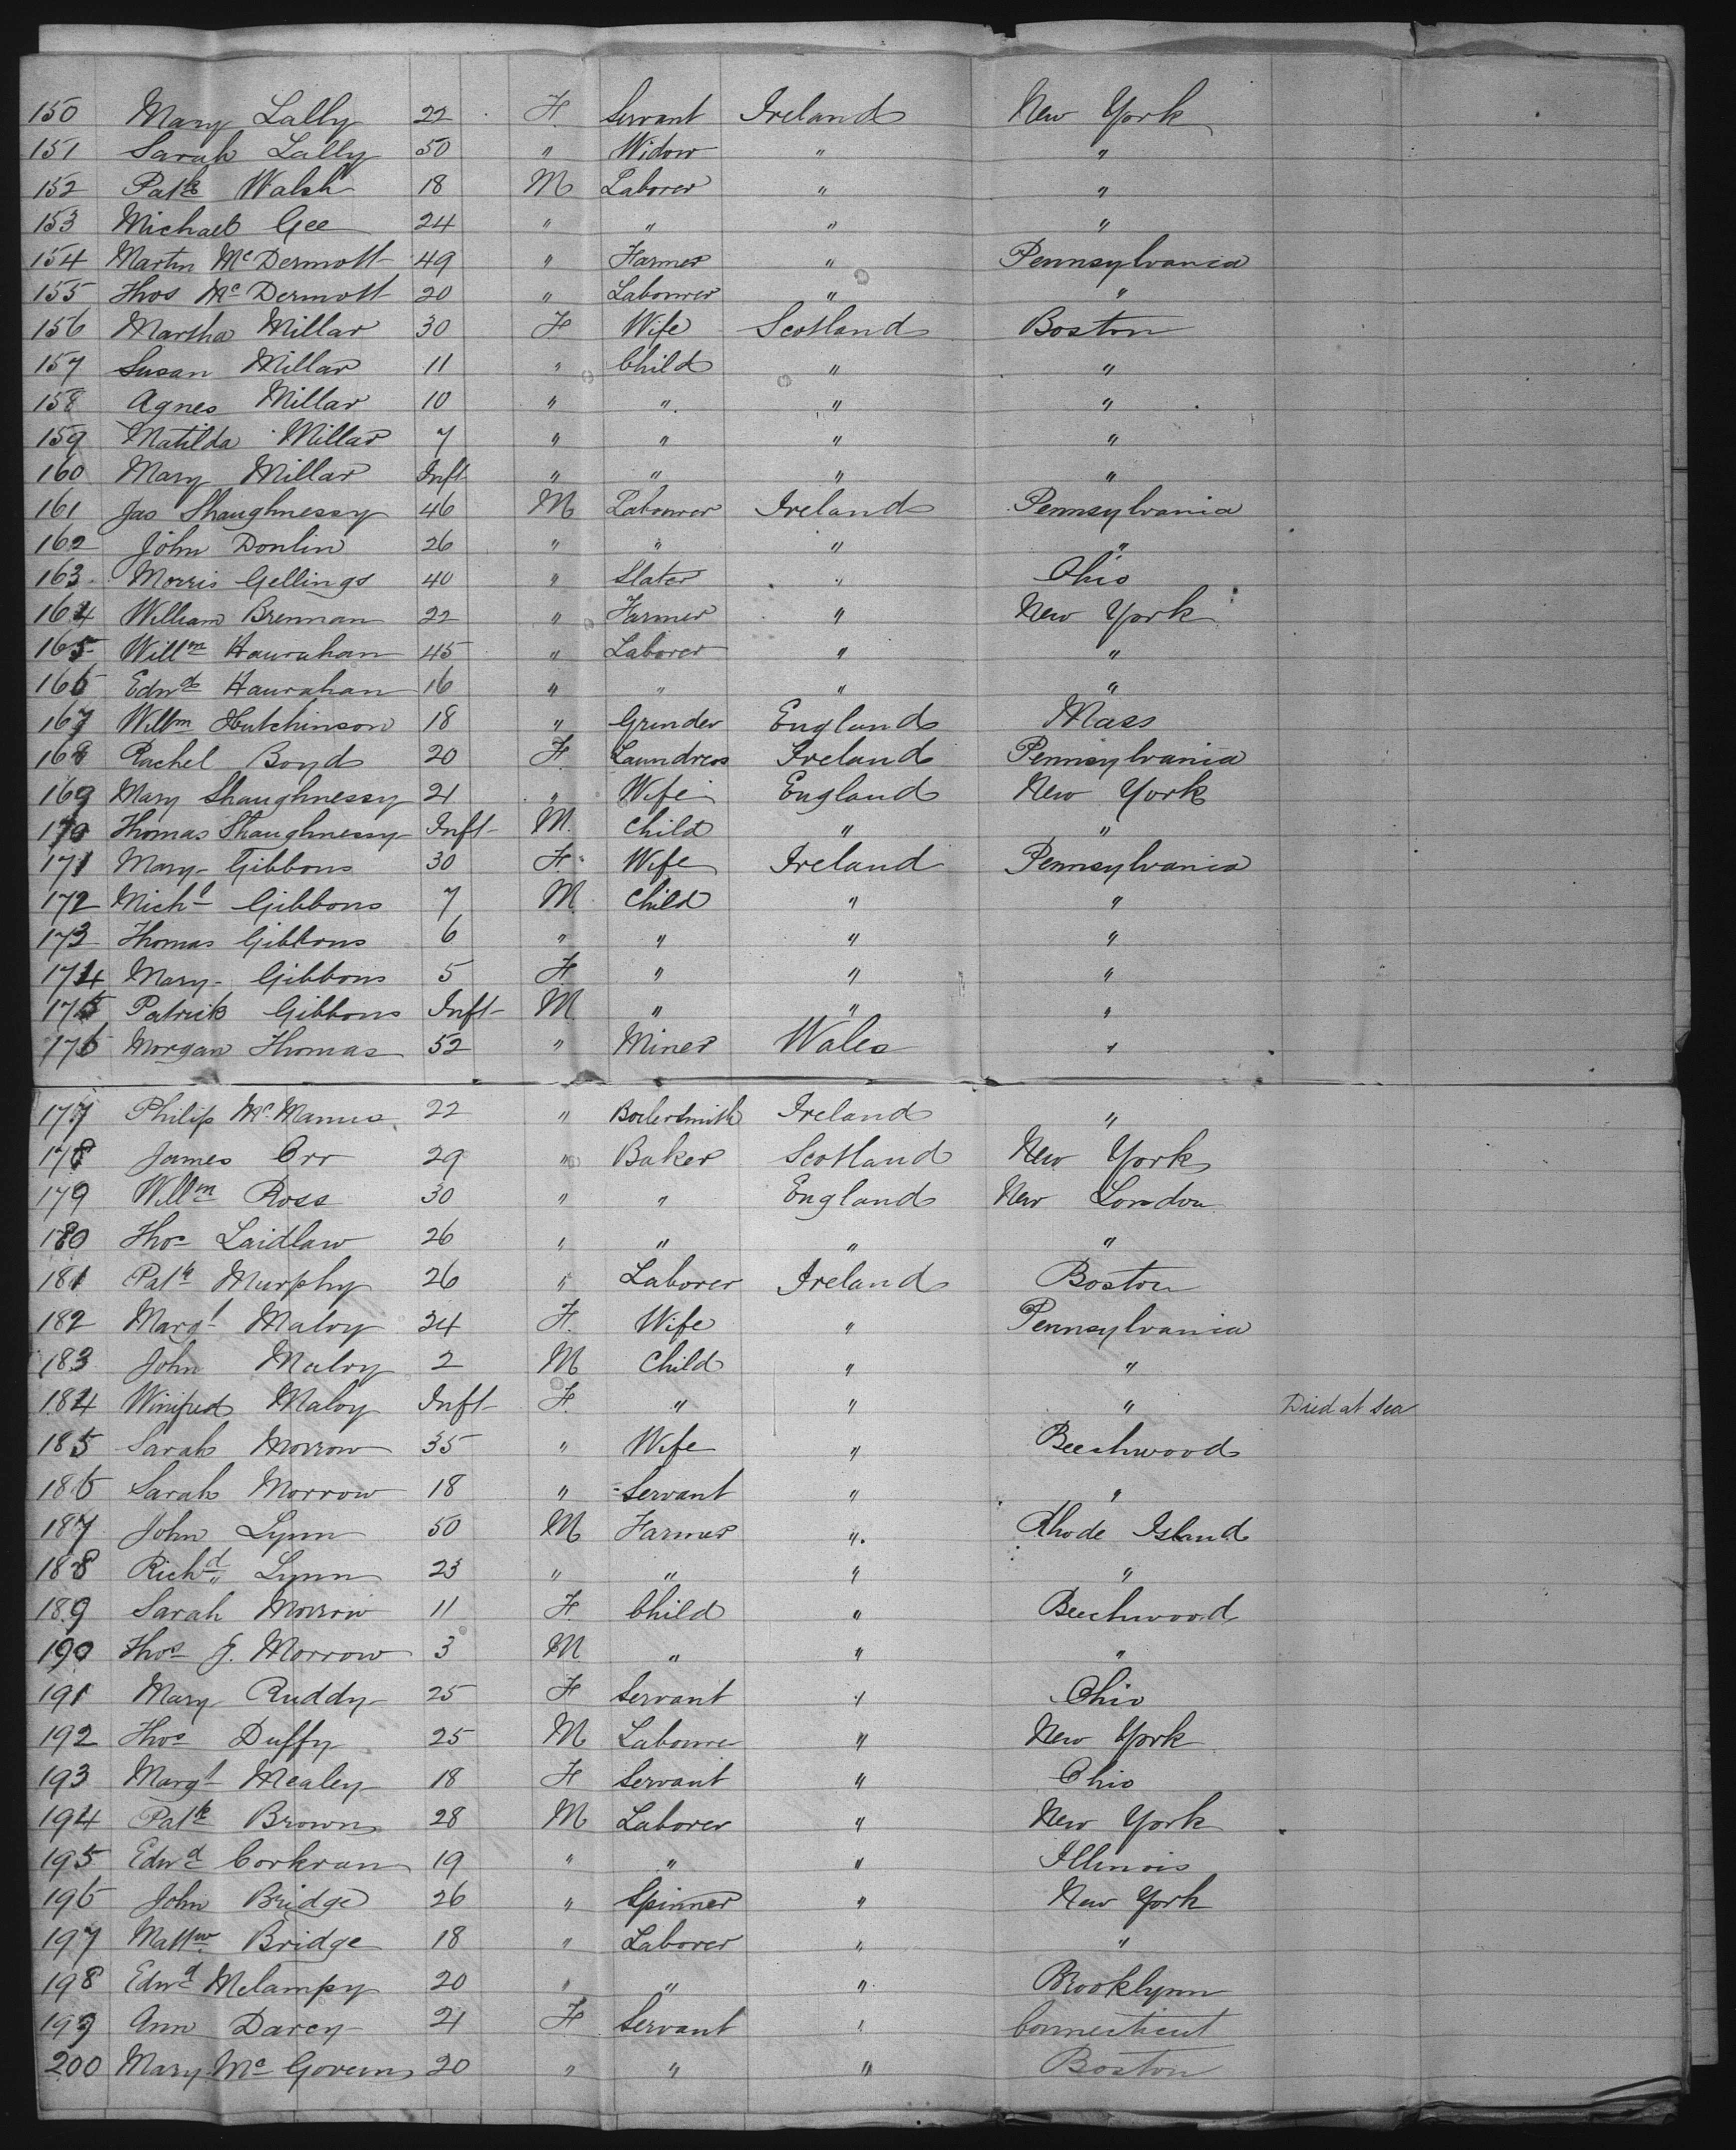 150 Mary Lally 22 F. Servant Ireland New York
151 Sarah Lally 50 " Widow " "
152 Patk Walsh 18 M Laborer " "
153 Michael Gee 24 " " " "
154 Martin McDermott 49 " Farmer " Pennsylvania
155 Thos McDermott 20 " Labourer " "
156 Martha Millar 30 F Wife Scotland Boston
157 Susan Millar 11 " Child " "
158 Agnes Millar 10 " " " "
159 Matilda Millar 7 " " " "
160 Mary Millar Inft " " " "
161 Jas Shaughnessy 46 M Labourer Ireland Pennsylvania
162 John Donlin 26 " " " "
163 Morris Gellings 40 " Slater " Ohio
164 William Brennan 22 " Farmer " New York
165 Willm Haurahan 45 " Laborer " "
166 Edwd Haurahan 16 " " " "
167 Willm Hutchinson 18 " Grinder England Mass
168 Rachel Boyd 20 F. Laundress Ireland Pennsylvania
169 Mary Shaughnessy 21 " Wife England New York
170 Thomas Shaughnessy Inft M. Child " "
171 Mary Gibbons 30 F. Wife Ireland Pennsylvania
172 Michl Gibbons 7 M. Child " "
173 Thomas Gibbons 6 " " " "
174 Mary Gibbons 5 F. " " "
175 Patrick Gibbons Inft M. " " "
176 Morgan Thomas 52 " Miner Wales "
177 Philip McManus 22 " Boilersmith Ireland "
178 James Orr 29 " Baker Scotland New York
179 Willm Ross 30 " " England New London
180 Thos Laidlaw 26 " " " "
181 Patk Murphy 26 " Laborer Ireland Boston
182 Margt Maloy 34 F. Wife " Pennsylvania
183 John Maloy 2 M Child " "
184 Winifred Maloy Inft F. " " " Died at sea
185 Sarah Morrow 35 " Wife " Beechwood
186 Sarah Morrow 18 " Servant " "
187 John Lynn 50 M Farmer " Rhode Island
188 Richd Lynn 23 " " " "
189 Sarah Morrow 11 F. Child " Beechwood
190 Thos J. Morrow 3 M " " "
191 Mary Ruddy 25 F Servant " Ohio
192 Thos Duffy 25 M Labourer " New York
193 Margt Mealey 18 F Servant " Ohio
194 Patk Brown 28 M Laborer " New York
195 Edwd Corkran 19 " " " Illinois
196 John Bridge 26 " Spinner " New York
197 Mattw Bridge 18 " Laborer " "
198 Edwd Melampy 20 " " " Brooklynn
199 Ann Darcy 21 F Servant " Connecticut
200 Mary McGovern 20 " " " Boston